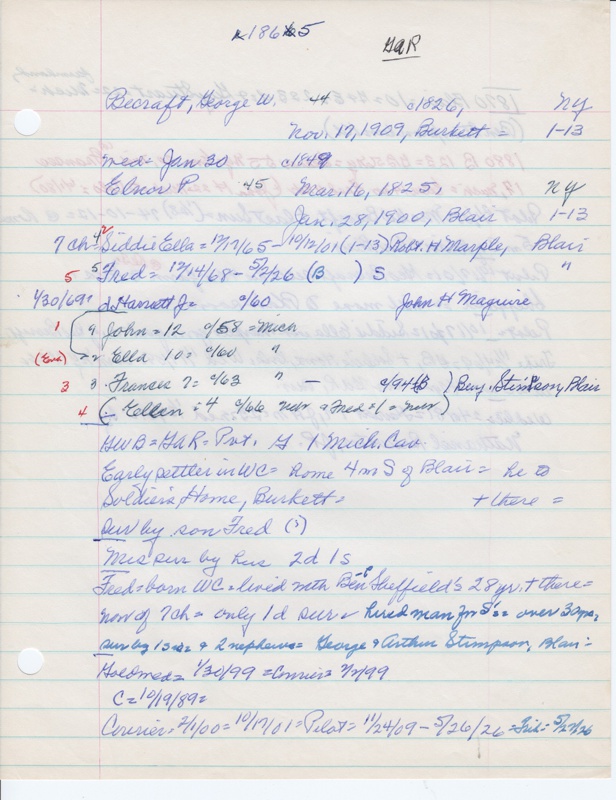 c1865
GAR
Becraft, George W. 44 c1826, NY
Nov. 17, 1909, Burkett = 1-13
med = Jan 30 c1849
Elnor P. 45 Mar. 16, 1825, NY
Jan. 28, 1900, Blair 1-13
7 ch = Siddie Ella = 12/17/65 - 10/12/01 (1-13) Robt. H Marple, Blair
5 Fred = 12/14/68 - 5/2/26 (B ) S "
1/30/69? d Harriett J = c/60 John H Maguire
1 9 John = 12 c/58 = Mich
(Eva) 2 Ella 10 = c/60 "
3 3 Frances 7 = c/63 " - c/94 B ) Benj. Stimpson, Blair
4 (Ellen = 4 c/66 Nebr & Fred = 1 = Nebr)
GWB = GAR = Pvt. G 1 Mich. Cav.
Early settler in WC = home 4 m S of Blair = he to
Soldier's Home, Burkett = + there =
sur by son Fred (s)
Mrs sur by hus 2d 1s
Fred = born WC = lived with Ben Sheffield's 28 yr. + there =
now of 7 ch = only 1d sur = hired man for S's = over 30 yrs,
sur by 1 sis = & 2 nephews = George & Arthur Stimpson, Blair =
Gold med = 1/30/99 = Courier =
C = 10/19/89 =
Courier = 2/1/00 = 10/17/01 = Pilot = 11/24/09 - 5/26/26 = Trib = 5/27/26